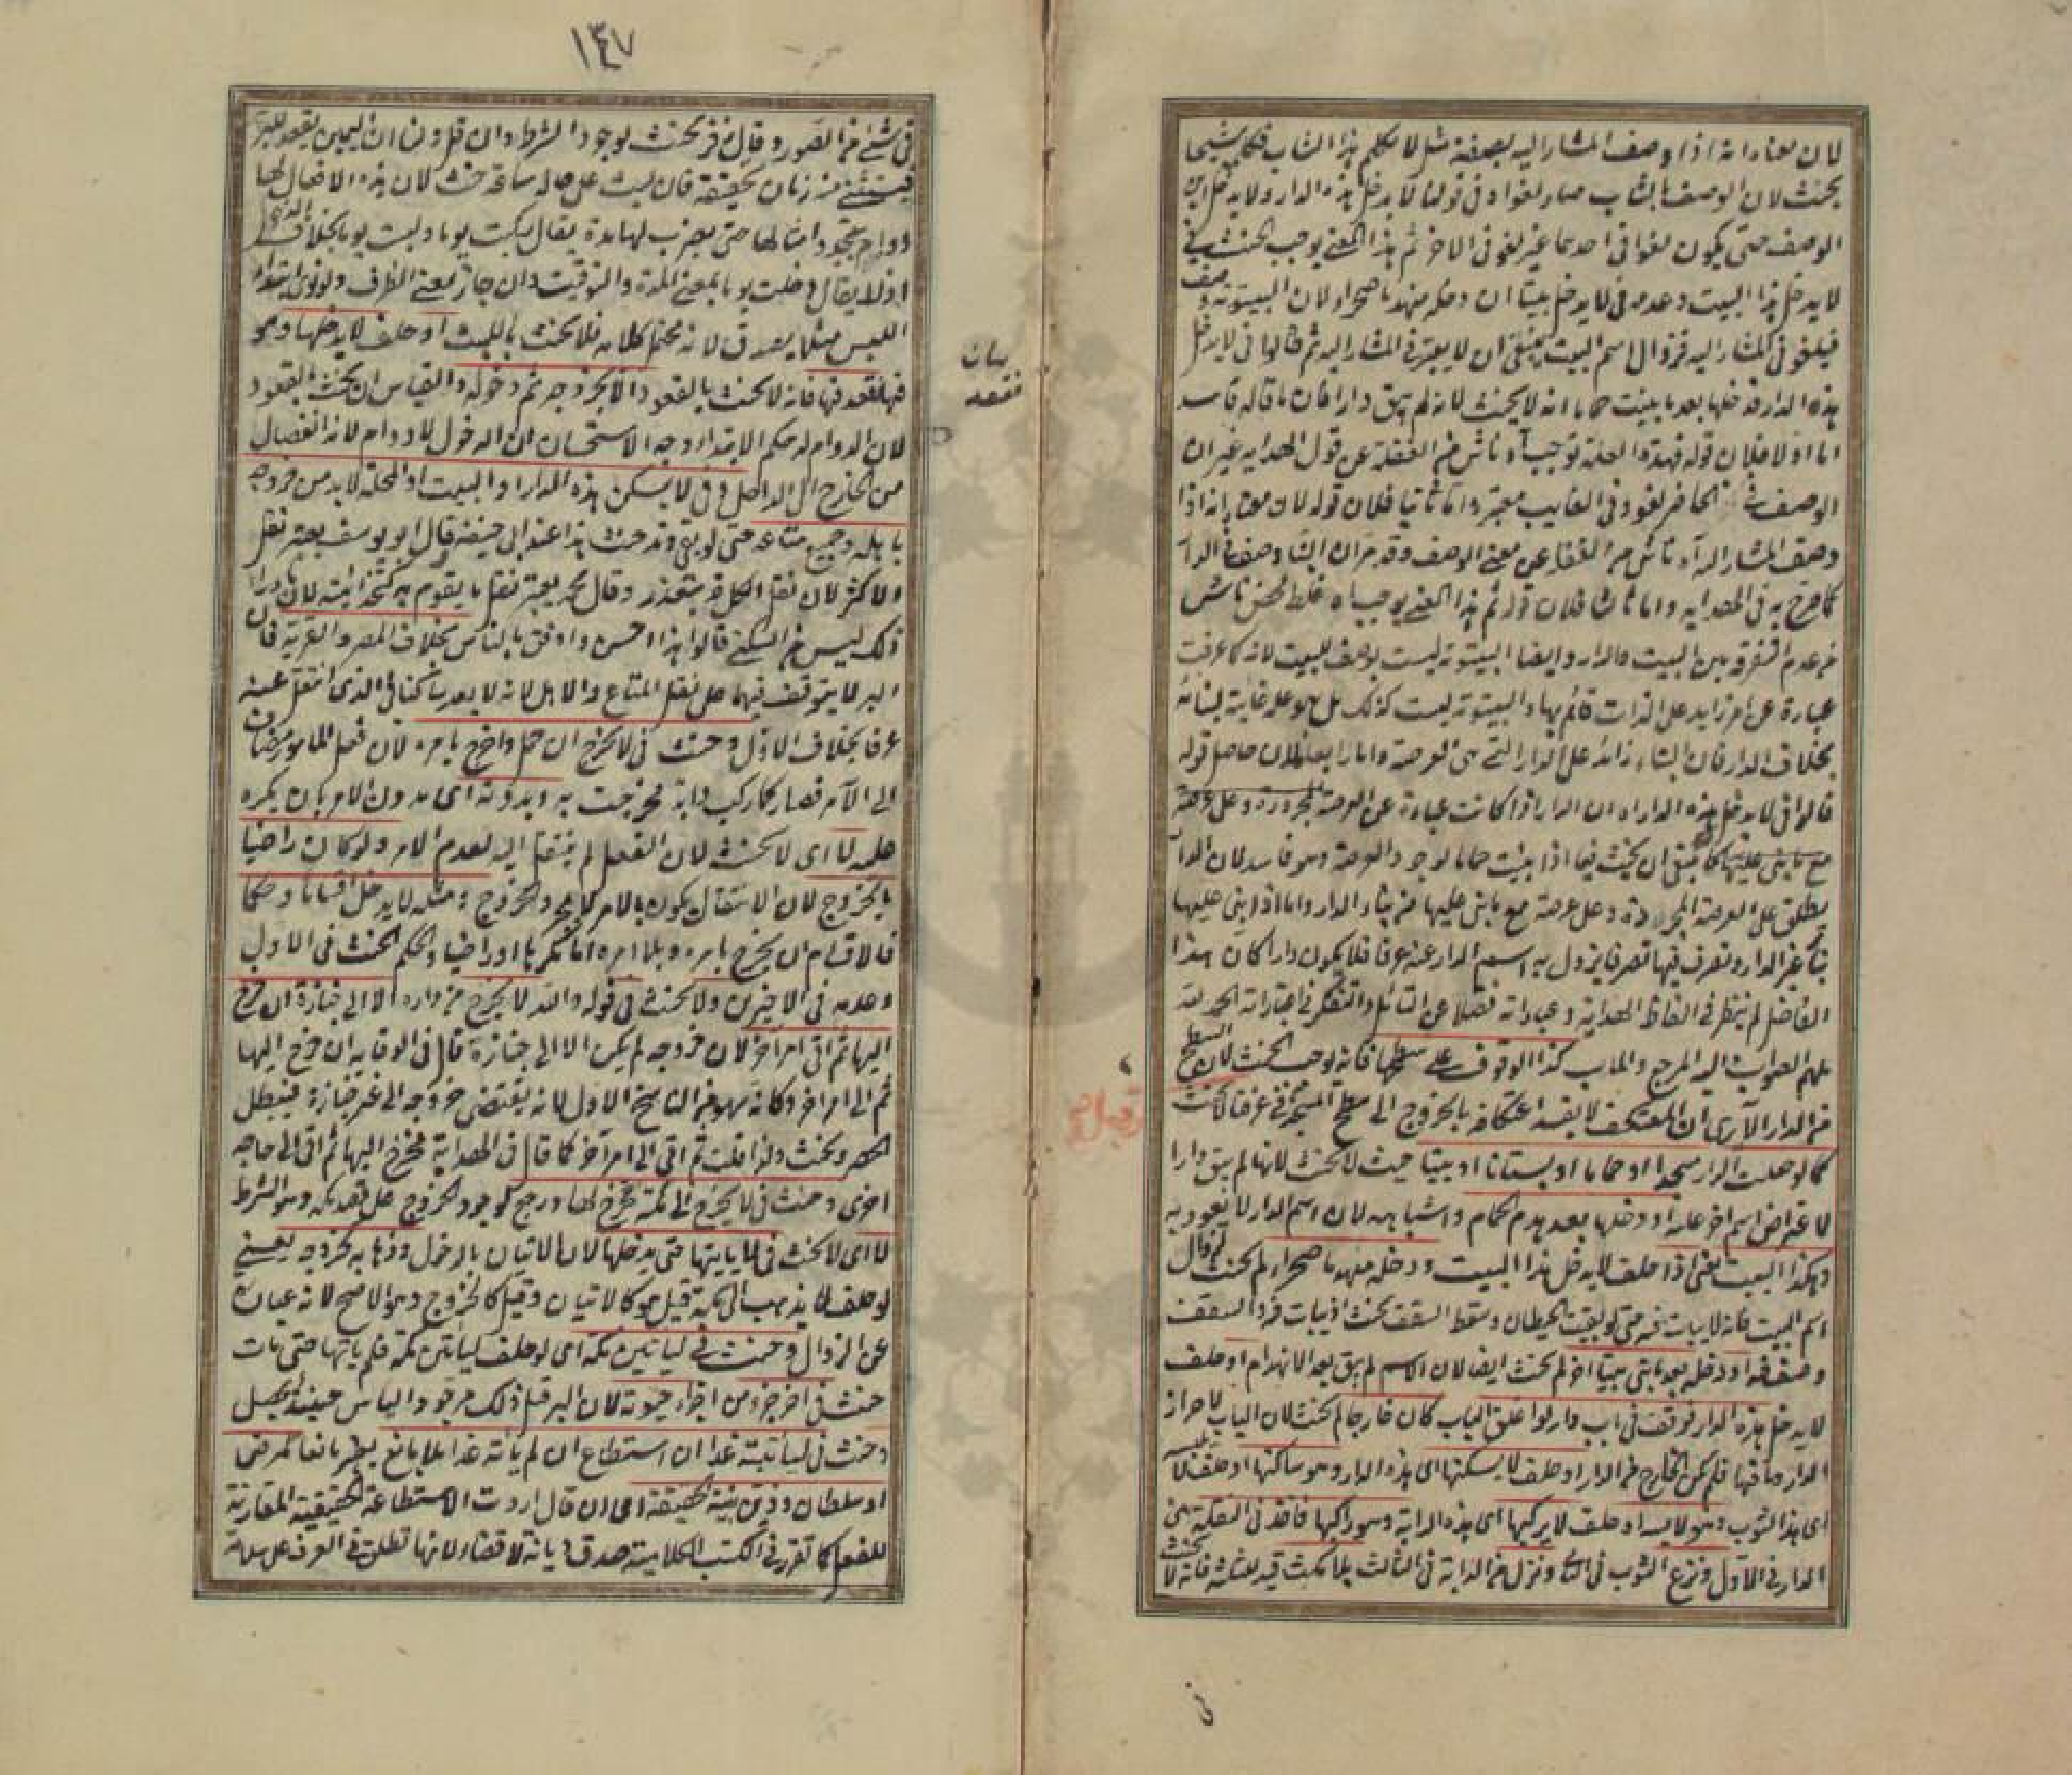 لان معناه انه اذا وصف المشار اليه بصفة مثل لا يكلم هذا الشاب فكلمه شيخا
يحنث لان الوصف بالشاب صار لغوا وفي قولنا لا يدخل هذه الدار ولا يدخل اين
الوصف حتى يكون لغوا في احدهما غير لغو في الاخر ثم هذا المعنى يوجب الحنث في
لا يدخل هذا البيت وعدمه في لا يدخل بيتا ان دخله منهدما صحراء لان البيتوتة وصف
فيلغو في المشار اليه فزوال اسم البيت ينبغي ان لا يعتبر في المشار اليه ثم قالوا في لا يدخل
هذه الدار فدخلها بعد ما بنيت حماما انه لا يحنث لانه لم يبق دارا فان ما قاله فاسد
اما اولا فلان قوله فهذه العلة توجب آه ناش من الغفلة عن قول الهداية غير ان
الوصف في الحاضر لغو وفي الغايب معتبر واما ثانيا فلان قوله لان معناه انه اذا
وصف المشار اليه آه ناش من الغفلة عن معنى الوصف وقد مر ان البناء وصف في الدار
كما صرح به في الهداية واما ثالثا فلان قوله ثم هذا المعنى يوجب اه غلط محض ناش
من عدم التفرقة بين البيت والدار وايضا البيتوتة ليست بوصف للبيت لانه كما عرفت
عبارة عن امر زايد على الذات قائم بها والبيتوتة ليست كذلك بل هو علة غائية لبنائه
بخلاف الدار فان البناء زائد على الدار التي هي العرصة واما رابعا فلان حاصل قوله
قالوا في لا يدخل هذه الدار اه ان الدار اذا كانت عبارة عن العرصة المجردة وعلى عرصة
مع ما بني عليها كما ينبغي ان يحنث فيما اذا بنيت حماما لوجود العرصة وهو فاسد لان الدار
يطلق على العرصة المجردة وعلى عرصة مع ما بني عليها من بناء الدار واما اذا بني عليها
بناء غير الدار وتصرف فيها تصرفا يزول به اسم الدار عنه عرفا فلا يكون دارا كان هذا
الفاضل لم ينظر في الفاظ الهداية وعباراته فضلا عن التأمل والتفكر في اعتباراته الحمد لله
ملهم الصواب واليه المرجع والماب كذا الوقوف على سطحها فانه يوجب الحنث لان السطح
من الدار الا يرى ان المعتكف لا يفسد اعتكافه بالخروج الى سطح المسجد وفي عرفنا لا يحنث
كما لو جعلت الدار مسجدا او حماما او بستانا او بيتا حيث لا يحنث لانها لم يبق دارا
لاعتراض اسم اخر عليه او دخلها بعد هدم الحمام واشباهه لان اسم الدار لا يعود به
وهكذا البيت يعنى اذا حلف لا يدخل هذا البيت ودخله منهدما صحراء لم يحنث لزوال
اسم البيت فانه لا يبات فيه حتى لو بقيت الحيطان وسقط السقف يحنث اذ يبات فيه والسقف
وصف فيه او دخله بعد ما بني بيتا اخر لم يحنث ايضا لان الاسم لم يبق بعد الانهدام او حلف
لا يدخل هذه الدار فوقف في باب دار لو اغلق الباب كان خارجا لم يحنث لان الباب لاحراز
الدار وما فيها فلم يكن الخارج من الدار او حلف لا يسكنها اى هذه الدار وهو ساكنها او حلف لا يلبسه
اى هذا الثوب وهو لابسه او حلف لا يركبها اى هذه الدابة وهو راكبها فاخذ في النقلة من
الدار في الاول ونزع الثوب في الثاني ونزل من الدابة في الثالث بلا مكث قيد للثلثة فانه لا يحنث
في
١٤٧
في شئ من الصور وقال زفر يحنث لوجود الشرط وان قل ولنا ان اليمين يعقد للبر
فيستثنى منه زمان تحقيقه فان لبث على حاله ساعة حنث لان هذه الافعال لها
دوام بتجدد امثالها حتى يضرب لها مدة يقال ركبت يوما ولبست يوما بخلاف الدخول
اذ لا يقال دخلت يوما بمعنى المدة والتوقيت وان جاز بمعنى الظرف ولو نوى ابتداء
اللبس مثلا يصدق لانه محتمل كلامه فلا يحنث باللبث او حلف لا يدخلها وهو
فيها فقعد فيها فانه لا يحنث بالقعود الا بخروجه ثم دخوله والقياس ان يحنث بالقعود
لان الدوام له حكم الابتداء وجه الاستحسان ان الدخول لا دوام له لانه انفصال
من الخارج الى الداخل وفي لا يسكن هذه الدار او البيت او المحلة لا بد من خروجه
باهله وجميع متاعه حتى لو بقي وتد حنث هذا عند ابي حنيفة وقال ابو يوسف يعتبر نقل
الاكثر لان نقل الكل قد يتعذر وقال محمد يعتبر نقل ما يقوم به كتخدائيته لان ما وراء
ذلك ليس من السكنى قالوا هذا احسن وارفق بالناس بخلاف المصر والقرية فان
البر لا يتوقف فيهما على نقل المتاع والاهل لانه لا يعد ساكنا في الذى انتقل عنه
عرفا بخلاف الاول وحنث في لا يخرج ان حمل واخرج بامره لان فعل المامور مضاف
الى الآمر فصار كما ركب دابة فخرجت به وبدونه اى بدون الامر بان يكره
عليه لا اى لا يحنث لان الفعل لم ينتقل اليه لعدم الامر ولو كان راضيا
بالخروج لان الانتقال يكون بالامر لا بمجرد الخروج ومثله لا يدخل اقساما وحكما
فالاقسام ان يخرج بامره وبلا امره اما مكرها او راضيا والحكم الحنث في الاول
وعدمه في الاخيرين ولا يحنث في قوله والله لا يخرج من داره الا الى جنازة ان خرج
اليها ثم اتى امرا اخر لان خروجه لم يكن الا الى جنازة قال في الوقاية ان خرج اليها
ثم الى امر اخر وكانه سهو من الناسخ الاول لانه يقتضي خروجه الى غير جنازة فيبطل
الحصر ويحنث ولذا قلت ثم اتى الى امر آخر كما قال في الهداية فخرج اليها ثم اتى الى حاجه
اخرى وحنث في لا يخرج الى مكة فخرج لها ورجع لوجود الخروج على قصد مكة وهو الشرط
لا اى لا يحنث في لا ياتيها حتى يدخلها لان الاتيان بالدخول وذهابه كخروجه يعني
لو حلف لا يذهب الى مكة قيل هو كالاتيان وقيل كالخروج وهو الاصح لانه عبارة
عن الزوال وحنث في لياتين مكة اى لو حلف لياتين مكة فلم ياتها حتى مات
حنث في اخر جزء من اجزاء حيوته لان البر قبل ذلك مرجو والياس حينئذ يحصل
وحنث في لياتينه غدا ان استطاع ان لم يأته غدا بلا مانع يعتبر مانعا كمرض
او سلطان ودين بنية الحقيقة اى ان قال اردت الاستطاعة الحقيقية المقارنة
للفعل كما تقرر في الكتب الكلامية صدق ديانة لا قضاء لانها تطلق في العرف على سلامة